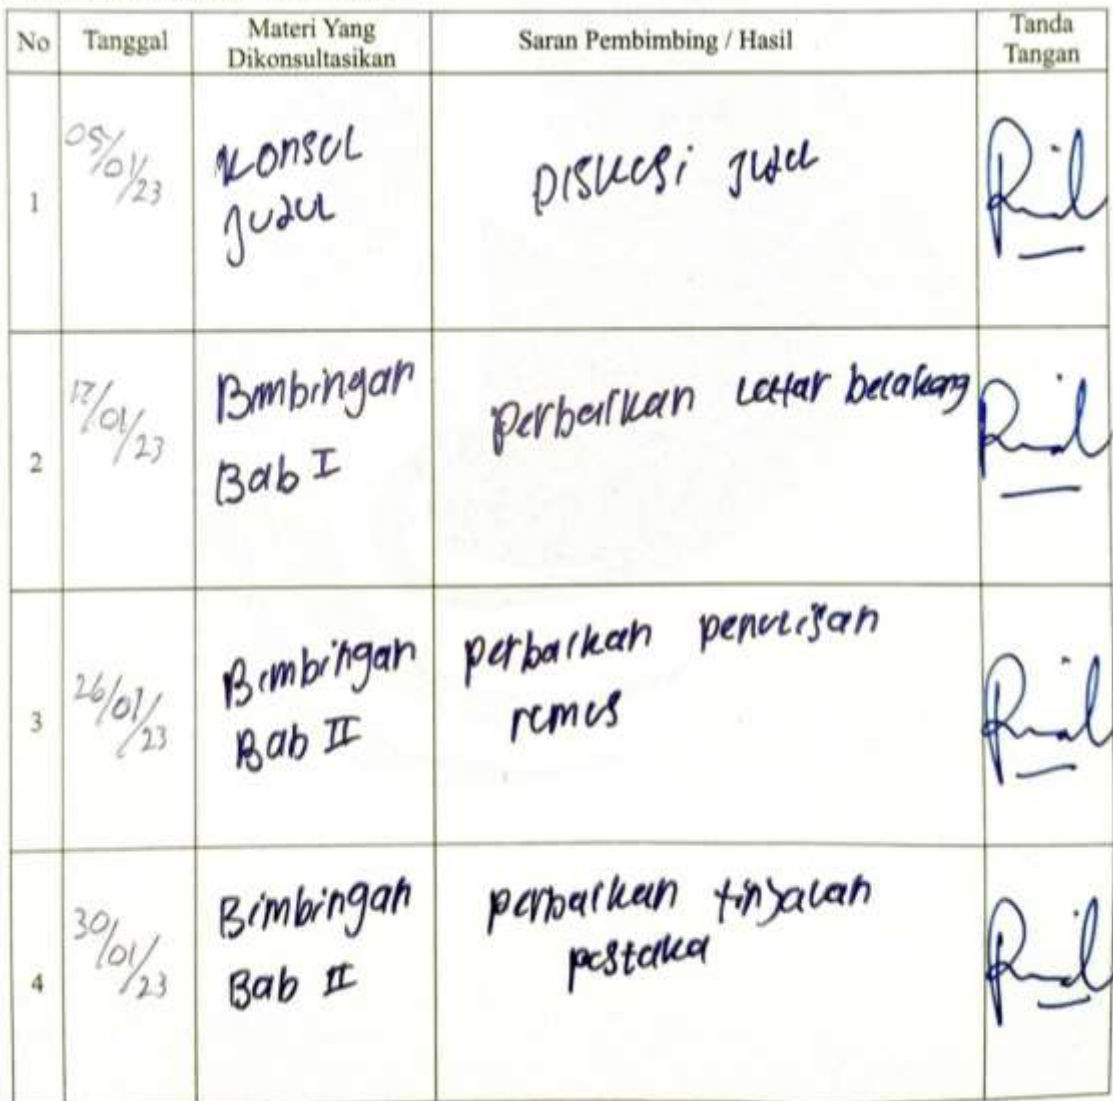 No
Tanggal
Materi Yang
Dikonsultasikan
Saran Pembimbing / Hasil
Tanda
Tangan
1
05/01/23
Konsul
Judul
Diskusi Judul
2
17/01/23
Bimbingan
Bab I
perbaikan Latar belakang
3
26/01/23
Bimbingan
Bab II
perbaikan penulisan
rumus
4
30/01/23
Bimbingan
Bab II
perbaikan tinjauan
pustaka